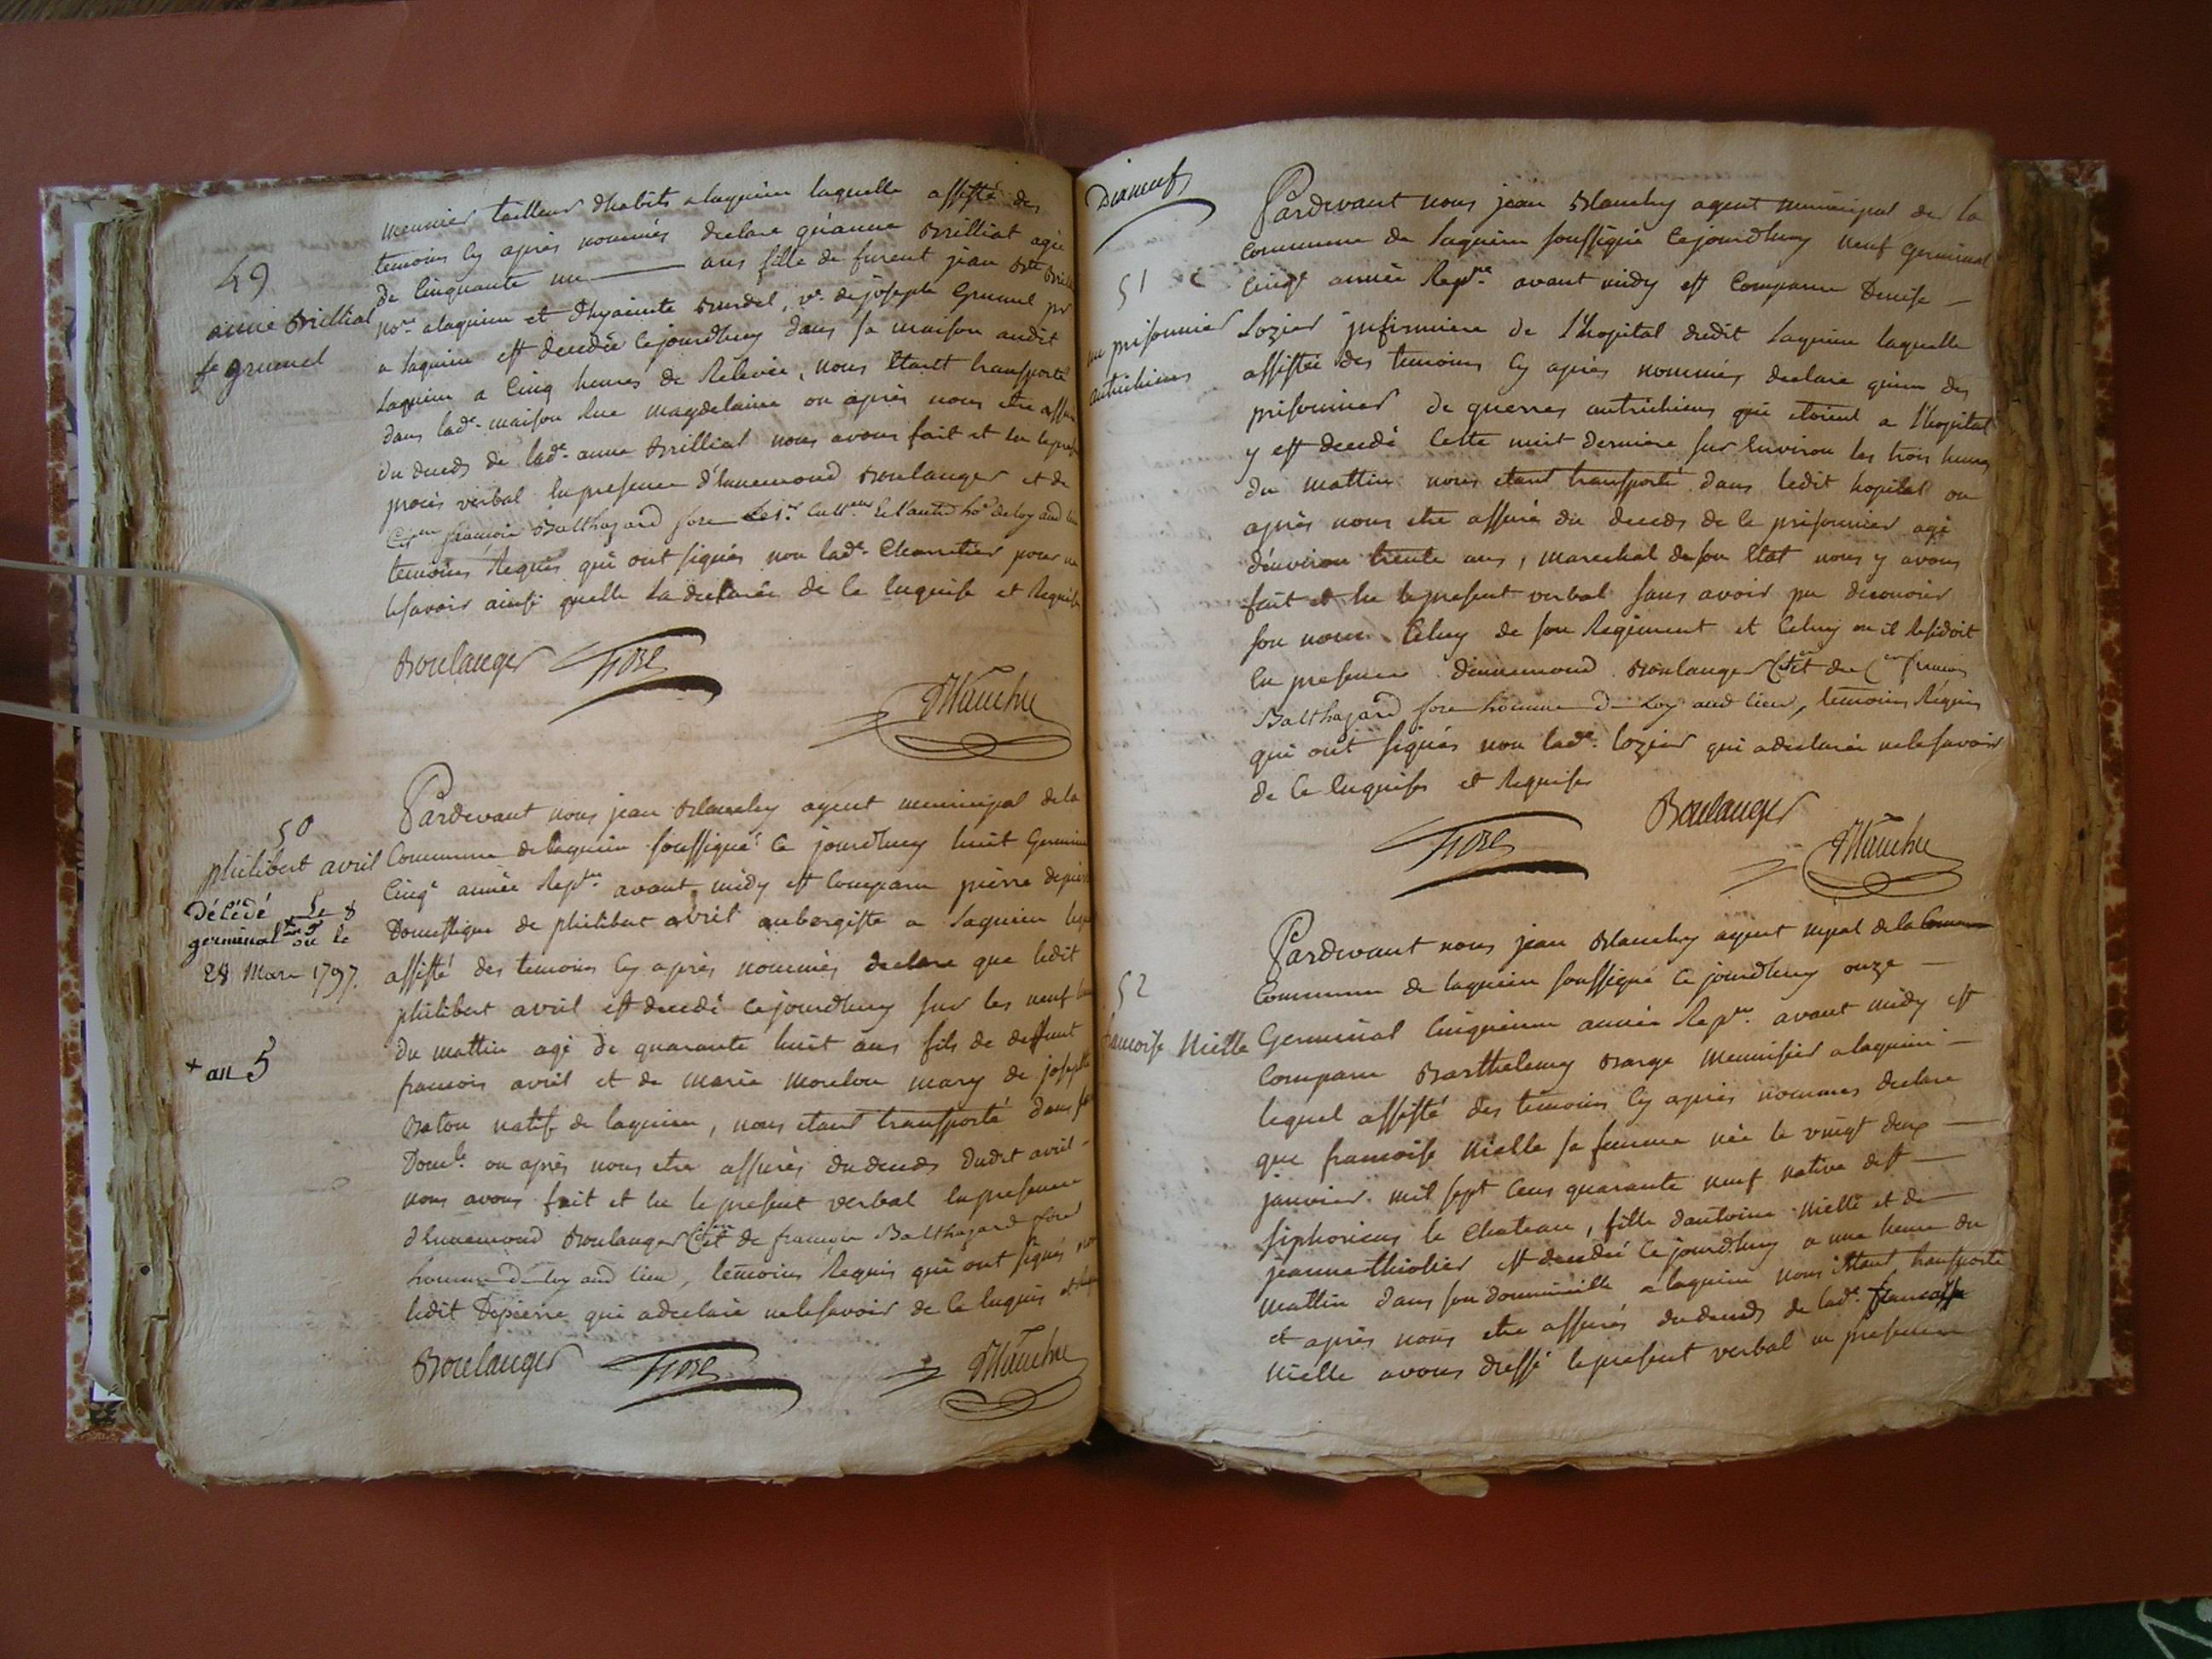 49
anne Brilliat
fe grumel
meunier tailleur dhabits a lagnieu laquelle assisté des
temoins cy apres nommés declare qu'anne Brilliat agée
de cinquante un ans fille de furent jean Btte
nore. a lagnieu et dhyacinte Burdel, ve. de joseph Grumel
a lagnieu est decedée cejourdhuy dans sa maison audit
Lagnieu a cinq heures de Relevée, nous étant transporté
dans lade. maison Rue magdelaine ou après nous etre
du deceds de lade. anne Brilliat nous avons fait et lu le
procès verbal en presence d'hennemond Boulanger et de
françois Balthazard fore
temoins Requis qui ont signés non lade. Charretier pour ne
lesavoir ainsi quelle la declarée de ce enquise et Requise
Boulanger fore
Blanchy
50
philibert avril
Décédé Le 8
germinal ou le
28 Mars 1797.
+ an 5
Pardevant nous jean Blanchy agent municipal dela
Commune de Lagnieu soussigné ce jourdhuy huit
Cinqe année Repne. avant midy est comparu pierre
Domestique de philibert avril aubergiste a Lagnieu
assisté des temoins cy après nommés declare que ledit
philibert avril est decedé cejourdhuy sur les neuf
du mattin agé de quarante huit ans fils de deffunt
francois avril et de marie moulon mary de josephte
Baton natif de lagnieu, nous etant transporté dans
Domle. ou après nous etre assurés dudeceds dudit avril
nous avons fait et lu le present verbal en presence
dhennemond Boulanger et de françois Balthazard fore
homme de loy aud lieu, temoins Requis qui ont signés
ledit Depierre qui adeclaré nelesavoir de ce enquis
Boulanger fore Blanchy
51
un prisonnier
autrichiens
Pardevant nous jean Blanchy agent municipal de la
Commune de Lagnieu soussigné Cejourdhuy neuf germinal
Cinqe année Repne. avant midy est Comparue Denise
Lozier infirmiere de l'hopital dudit Lagnieu laquelle
assistée des temoins cy après nommés declare quun des
prisonnier de guerres autrichiens qui etoient a l'hopital
y est decedé cette nuit derniere sur lenviron les trois heures
du mattin nous etant transporté dans ledit hopital ou
après nous etre assurés du deceds de ce prisonnier agé
d'environ trente ans, marechal deson Etat nous y avons
fait et lu le present verbal sans avoir pu decouvrir
son nom. Celuy de son Regiment et Celuy ou il Residoit
En presence d'ennemond Boulanger et de francois
Balthazard fore homme de Loy aud lieu, temoins Requis
qui ont signés non lade. lozier qui adeclarée nelesavoir
de ce Enquise et Requise
fore Boulanger
Blanchy
52
francoise Nielle
Pardevant nous jean Blanchy agent mpal de la
Commune de lagnieu soussigné ce jourdhuy onze
Germinal cinquieme année Repne. avant midy est
Comparu Barthelemy Barge Menuisier a lagnieu
lequel assisté des temoins cy après nommés declare
que francoise Nielle sa femme née le vingt deux
janvier mil sept Cens quarante neuf native de St
siphorieus le Chateau, fille dantoine Nielle et de
jeanne thiolier est decedée ce jourdhuy a une heure du
mattin dans son dommicille a lagnieu nous etant transporté
et après nous etre assurés dudeceds de lade. francoise
Nielle avons dressé lepresent verbal en presence